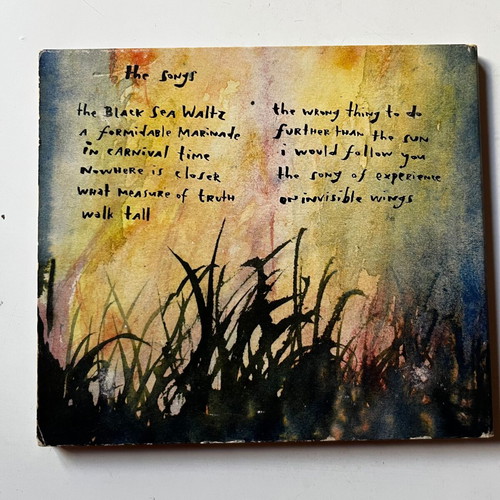 the songs
the BLACK SEA WALTZ
A formidable MARINADE
in CARNIVAL time
NOWHERE is CLOSER
WHAT MEASURE of TRUTH
walk tall
the WRONG thing to do
fURTHER THAN the SUN
i would follow you
the song of experience
ON invisible wings